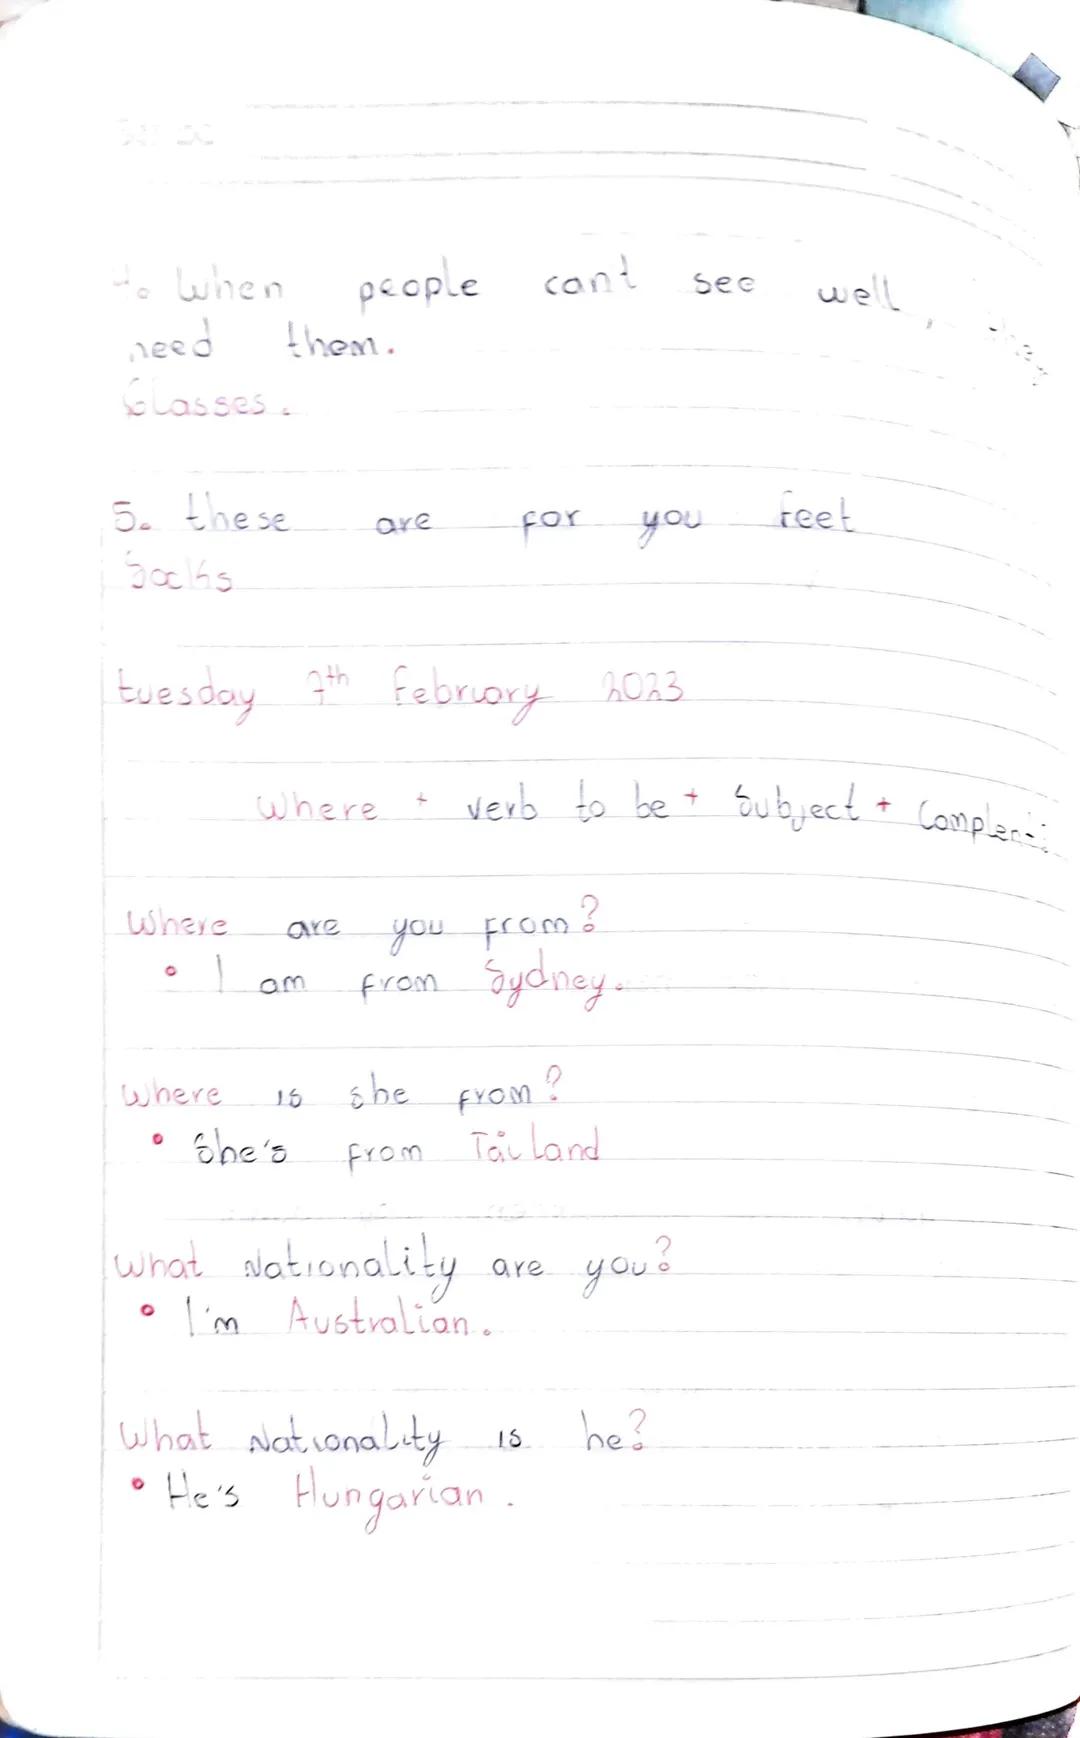 4. When people can't see well, they
need them.
Glasses.
5. these are for you feet
Socks
tuesday 7th February 2023
Where + verb to be + Subject + 
Where are you from?
• I am from Sydney.
Where is she from?
• She's from Tailand
What Nationality are you?
• I'm Australian.
What Nationality is he?
• He's Hungarian.